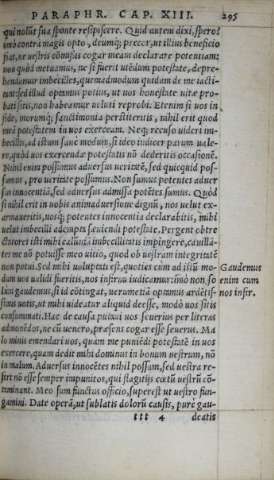 PARAPHR. CAP. XIII. 295
qui nolūt sua sponte resipiscere. Quid autem dixi, spero?
imò contra magis opto, deumq; precor, ut illius beneficio
fiat, ne uestris cōmissis cogar meam declarare potentiam:
non quòd metuamus, ne si fuerit utēdum potestate, depre-
hendamur imbecilles, quemadmodum quidam de me iacti-
tant: sed illud optamus potius, ut uos honestate uitæ pro-
bati sitis, nos habeamur ueluti reprobi. Etenim si uos in
fide, morumq; sanctimonia perstiteritis, nihil erit quod
meā potestatem in uos exerceam. Neq; recuso uideri im-
becillis, ad istum sanè modum, si ideo iudicer parum uale-
re, quòd uos exercenda potestatis nō dederitis occasionē.
Nihil enim possumus aduersus ueritatē, sed quicquid pos-
sumus, pro ueritate possumus. Non sumus potentes aduer
sus innocentiā, sed aduersus admissa potētes sumus. Quòd
si nihil erit in uobis animaduersione dignū, nos uelut ex-
armaueritis, uosq; potentes innocentia declarabitis, mihi
uelut imbecilli adempta sæuiendi potestate. Pergent obtre
ctatores isti mihi calumniā imbecillitatis impingere, cauillā-
tes me nō potuisse meo uitio, quod ob uestram integritatē
non potui. Sed mihi uoluptati est, quoties cum ad istū mo-
dum uos ualidi fueritis, nos infirmi iudicamur: imò non so
lum gaudemus, si id cōtingat, uerumetiā optamus ardētis-
simis uotis, ut mihi uideatur aliquid deesse, modò uos sitis
consummati. Hac de causa putaui uos seuerius per literas
admonēdos, ne cū uenero, præsens cogar esse seuerus. Ma
lo minis emendari uos, quàm me puniēdi potestatē in uos
exercere, quam dedit mihi dominus in bonum uestrum, nō
in malum. Aduersus innocētes nihil possum, sed uestra re-
fert nō esse semper impunitos, qui flagitijs cœtū uestrū cō-
taminant. Meo sum functus officio, superest ut uestro fun-
gamini. Date operā, ut sublatis dolorū causis, purè gau-
lll 4 deatis
Gaudemus
enim cum
nos infir.